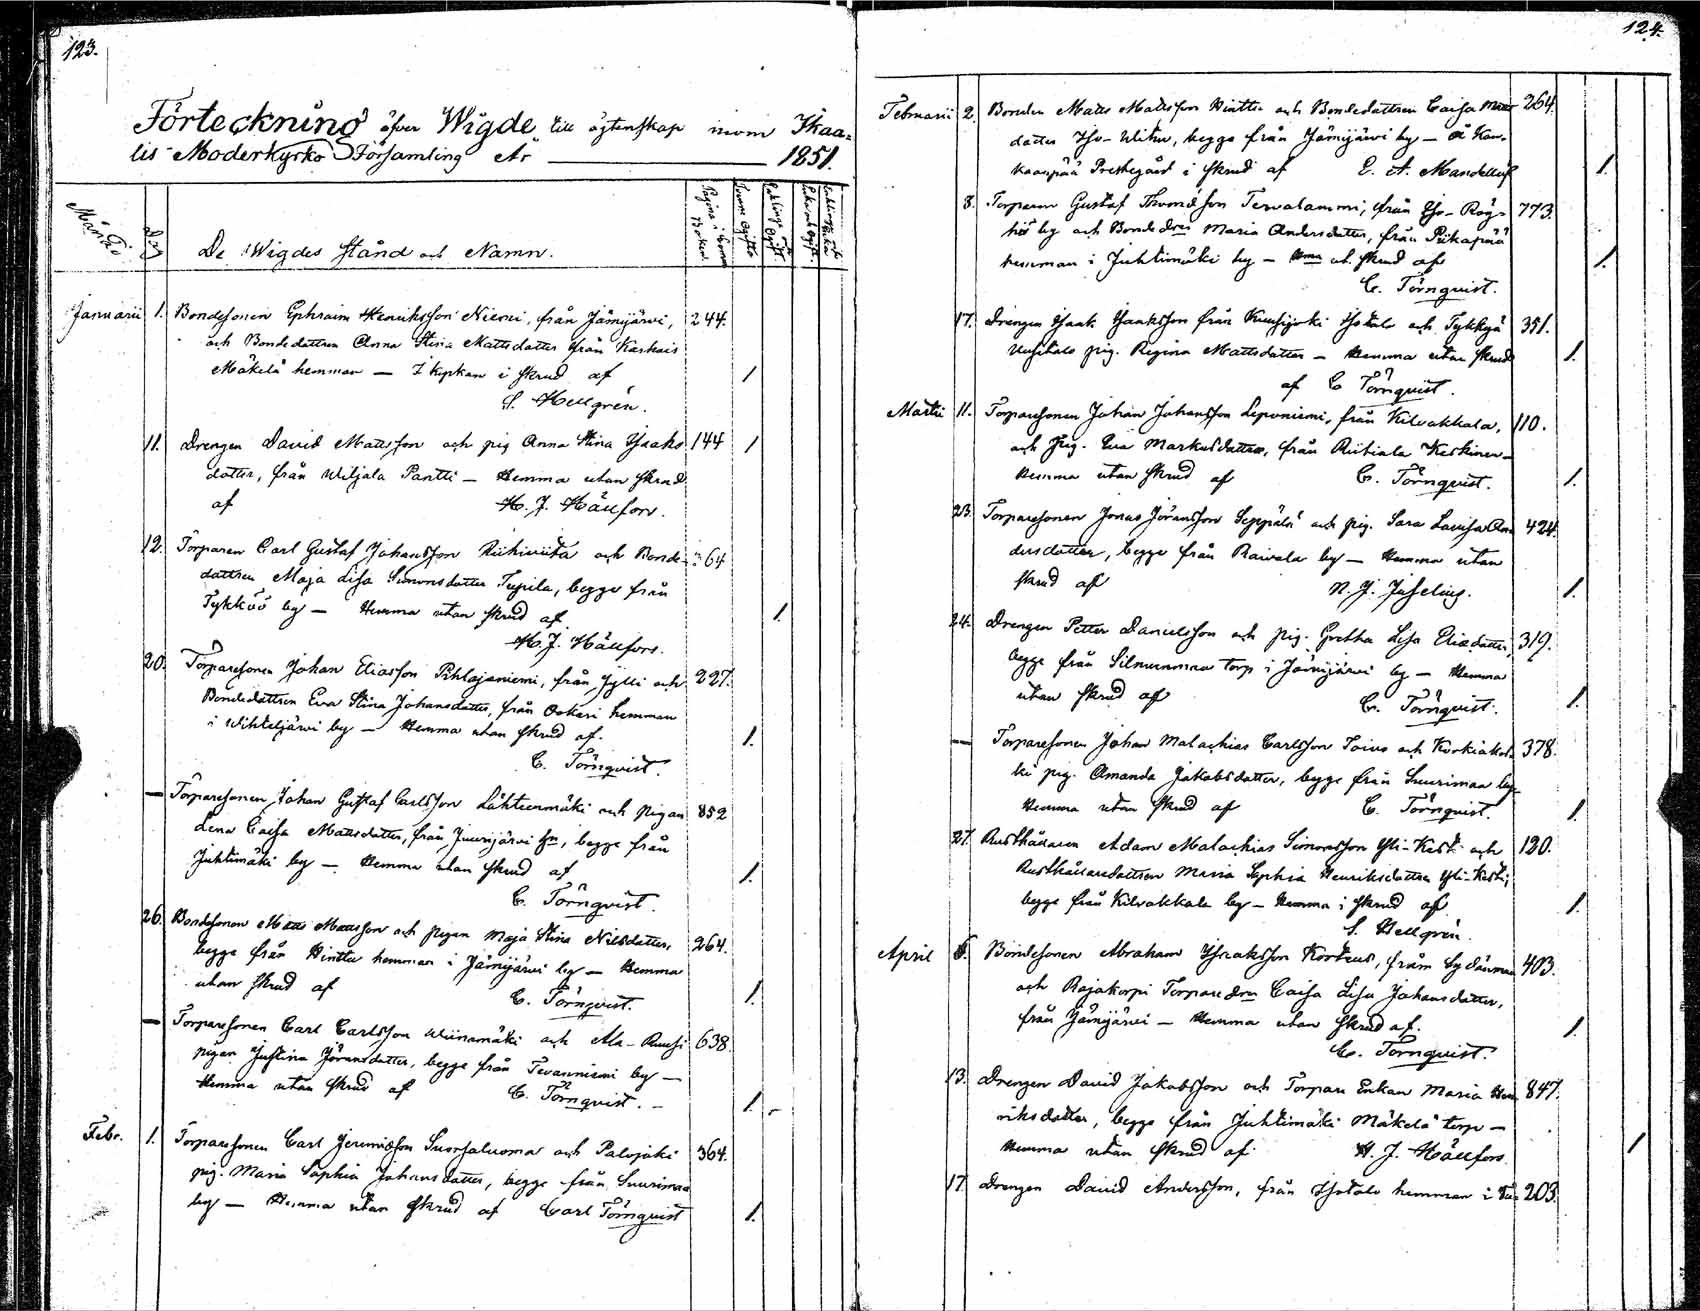 123.
Förteckning öfver Wigde till ägtenskap inom Ikaa-
lis Moderkyrko Församling År 1851.
Månad
Dag
De Wigdes stånd och Namn.
Pagina i Communion Boken.
Januarii 1. Bondesonen Ephraim Henriksson Niemi, från Jämijärvi, 244.
och Bondedottren Anna Stina Mattsdotter från Karhois
Mäkelä hemman — I kyrkan i skrud af 1
S. Hellgrén.
11. Drengen David Mattsson och pig Anna Stina Isaks 144 1
dotter, från Wiljala Pantti — Hemma utan skrud
af H. J. Hällfors.
12. Torparen Carl Gustaf Johansson Riihiviita och Bonde- 64
dottren Maja Lisa Simonsdotter Tupila, begge från
Tykköö by — Hemma utan skrud af 1.
H. J. Hällfors.
20. Torparesonen Johan Eliasson Pihlajaniemi, från Jylli och 227.
Bondedottren Eva Stina Johansdotter, från Oskari hemman
i Wihteljärvi by — Hemma utan skrud af. 1.
C. Törnqvist.
— Torparesonen Johan Gustaf Carlsson Lähteenmäki och pigan 852
Lena Caisa Mattsdotter, från Juurijärvi hn, begge från
Juhtimäki by — Hemma utan skrud af 1.
C. Törnqvist.
26. Bondesonen Matts Mattsson och pigan Maja Stina Nilsdotter, 264.
begge från Hinttu hemman i Jämijärvi by — Hemma
utan skrud af C. Törnqvist. 1.
— Torparesonen Carl Carlsson Wiinamäki och Ala-Ruusi 638
pigan Justina Jöransdotter, begge från Tevanniemi by —
Hemma utan skrud af C. Törnqvist. — 1.
Febr. 1. Torparesonen Carl Jeremiasson Suorsaluoma och Palojoki 364.
pig. Maria Sophia Johansdotter, begge från Suurimaa
by — Hemma utan skrud af Carl Törnqvist 1.
124.
Februarii 2. Bonden Matts Mattsson Hinttu och Bondedottren Caisa Matts 264.
dotter Iso-Uitu, begge från Jämijärvi by — Å Kan-
kaanpää Prestegård i skrud af E. A. Mandellöf 1.
8. Torparen Gustaf Thomasson Tervalammi, från Iso-Röy- 773.
hiö by och Bondedrn Maria Andersdotter, från Pukanpää
hemman i Juhtimäki by — Hma ut. skrud af 1.
C. Törnqvist.
17. Drengen Isaak Isaksson från Kuusijoki Isotalo och Tykkyä 351.
Uusitalo pig. Regina Mattsdotter — Hemma utan skrud 1.
af C. Törnqvist.
Martii 11. Torparesonen Johan Johansson Leponiemi, från Kilvakkala, 110.
och Pig. Eva Markusdotter, från Riitiala Keskinen —
Hemma utan skrud af C. Törnqvist. 1.
23. Torparesonen Jonas Jöransson Seppälä och pig. Sara Lovisa An- 424.
dersdotter, begge från Raivala by — Hemma utan
skrud af N. J. Juselius. 1.
24. Drengen Petter Danielsson och pig. Gretha Lisa Eliædotter, 319.
begge från Silmunmaa torp i Jämijärvi by — Hemma
utan skrud af C. Törnqvist. 1.
— Torparesonen Johan Malachias Carlsson Toivo och Korkiakos- 378.
ki pig. Amanda Jakobsdotter, begge från Suurimaa by —
Hemma utan skrud af C. Törnqvist. 1.
27. Rusthållaren Adam Malachias Simonsson Yli-Kesti och 120.
Rusthållaredottren Maria Sophia Henriksdotter Yli-Kesti,
begge från Kilvakkala by — Hemma i skrud af 1.
S. Hellgrén.
April 6. Bondesonen Abraham Isaaksson Korkeus, från Sydänmaa 403.
och Rajakorpi Torparedrn Caisa Lisa Johansdotter,
från Jämijärvi — Hemma utan skrud af. 1.
C. Törnqvist.
13. Drengen David Jakobsson och Torpare Enkan Maria Hen- 847.
riksdotter, begge från Juhtimäki Mäkelä torp —
Hemma utan skrud af H. J. Hällfors 1
17. Drengen David Andersson, från Isotalo hemman i 203.